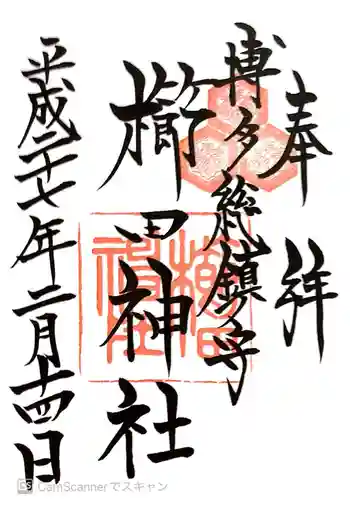 奉拝
博多総鎮守
櫛田神社
平成二十七年二月十四日
櫛田神社
CS CamScannerでスキャン